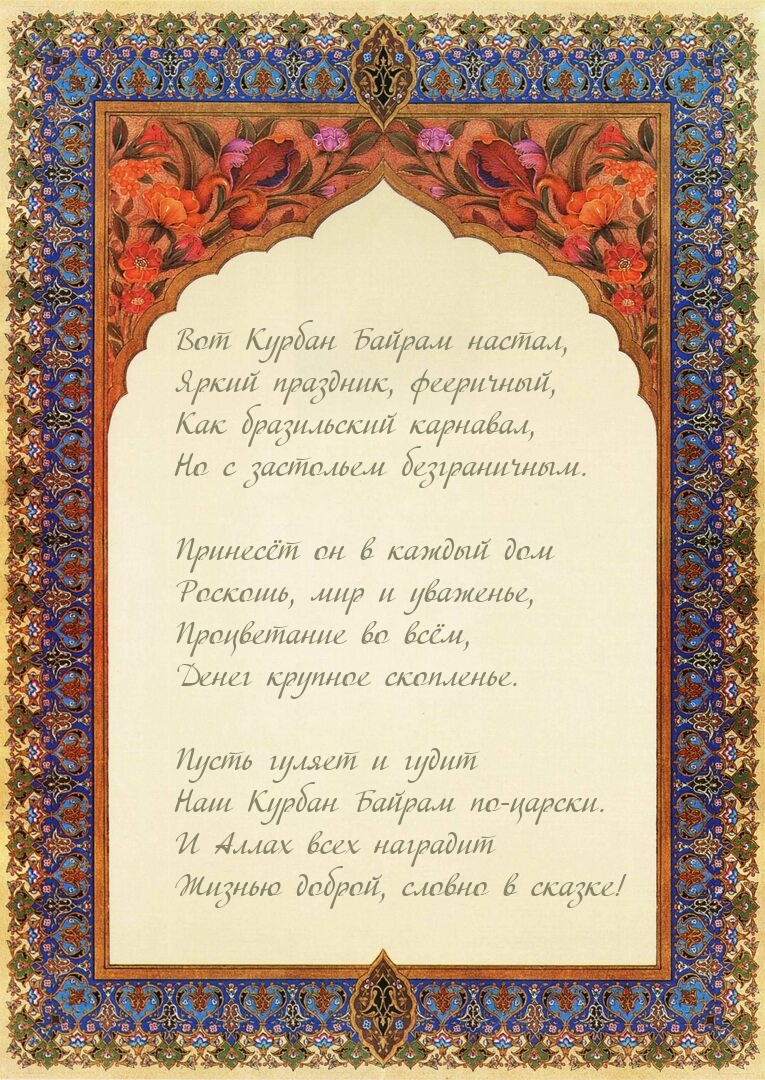 Вот Курбан Байрам настал,
Яркий праздник, фееричный,
Как бразильский карнавал,
Но с застольем безграничным.
Принесёт он в каждый дом
Роскошь, мир и уваженье,
Процветание во всём,
Денег крупное скопленье.
Пусть гуляет и гудит
Наш Курбан Байрам по-царски.
И Аллах всех наградит
Жизнью доброй, словно в сказке!